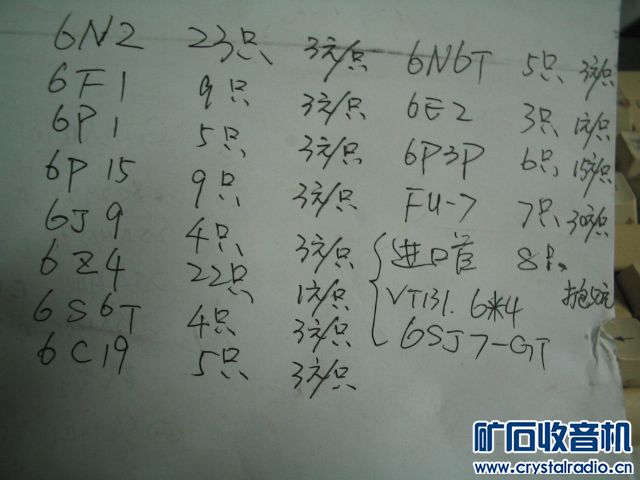 6N2 23只 3元/只
6F1 9只 3元/只
6P1 5只 3元/只
6P15 9只 3元/只
6J9 4只 3元/只
6Z4 22只 1元/只
6S6T 4只 3元/只
6C19 5只 3元/只
6N6T 5只 3元/只
6E2 3只 1元/只
6P3P 6只 15元/只
FU-7 7只 30元/只
进口管 8只
VT131. 6*4 打包50元
6SJ7-GT
矿石收音机
www.crystalradio.cn